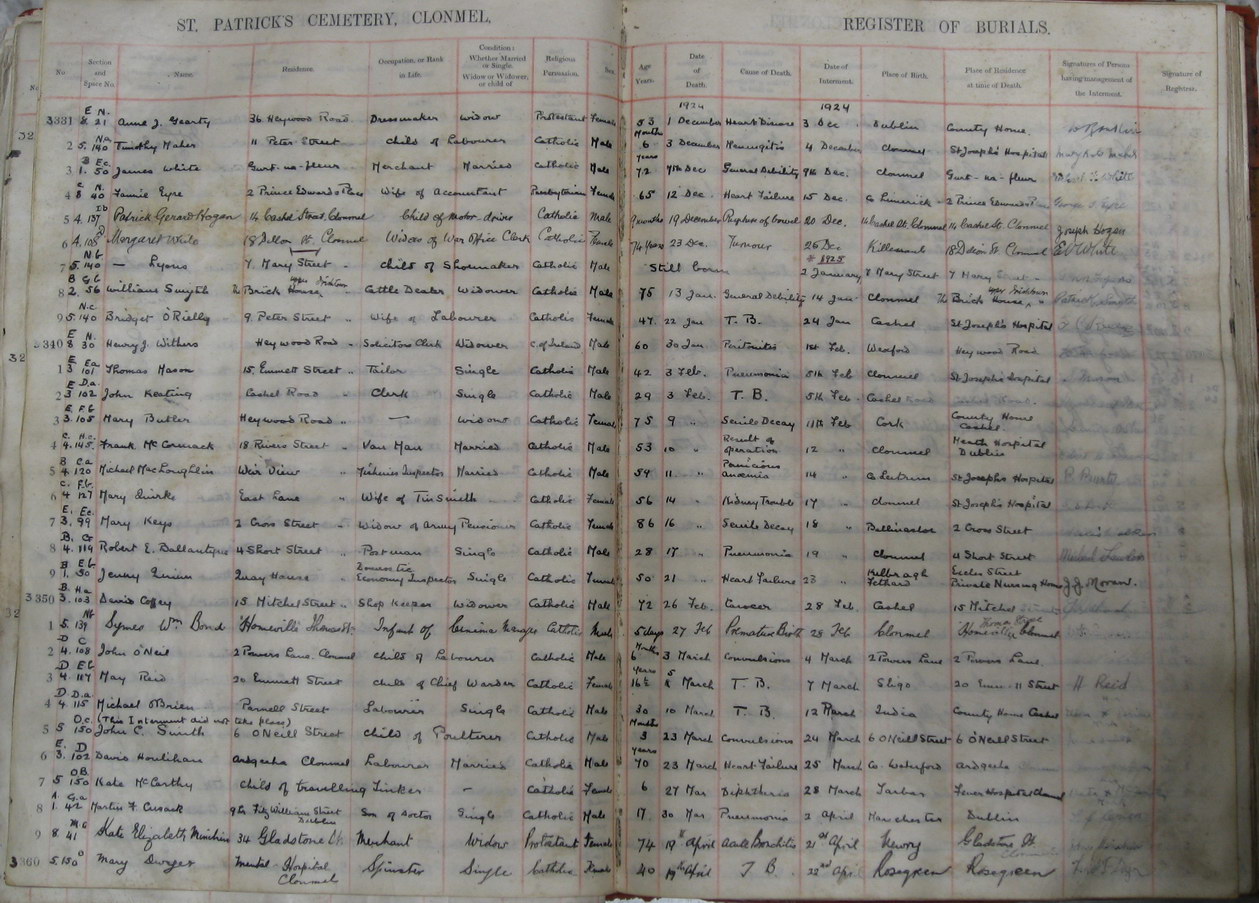 ST. PATRICK'S CEMETERY, CLONMEL. REGISTER OF BURIALS.
No Section and Space No. Name. Residence. Occupation, or Rank in Life. Condition: Whether Married or Single. Widow or Widower, or child of Religious Persuasion. Sex Age Years. Date of Death. Cause of Death. Date of Interment. Place of Birth. Place of Residence at time of Death. Signatures of Persons having management of the Interment. Signature of Registrar.
1924 1924
3331 E N. 8 21 Anne J. Gearty 36 Heywood Road Dressmaker Widow Protestant Female 53 1 December Heart Disease 3 Dec Dublin County Home.
2 5. 140 Timothy Maher 11 Peter Street child of Labourer Catholic Male 6 Months 3 December Meningitis 4 December Clonmel St Joseph's Hospital
3 B Ec. 1. 50 James White Gurt-na-fleur Merchant Married Catholic Male 72 years 7th Dec General Debility 9th Dec. Clonmel Gurt-na-fleur White
4 C N. 8 40 Fannie Eyre 2 Prince Edwards Place Wife of Accountant Presbyterian Female 65 12 Dec. Heart Failure 15 Dec. Co Limerick 2 Prince Edwards
5 4. 137 Patrick Gerard Hogan 14 Cashel Street, Clonmel Child of Motor-driver Catholic Male 9 months 19 December Rupture of bowel 20 Dec. 14 Cashel St. Clonmel 14 Cashel St. Clonmel Joseph Hogan
6 4. 108 Margaret White 18 Dillon St Clonmel Widow of War Office Clerk Catholic Female 74 years 23 Dec. Tumour 26 Dec Killenaule 18 Dillon St Clonmel White
1925
7 5. 140 — Lyons 7. Mary Street child of Shoemaker Catholic Male Still born 2 January 8 Mary Street 7 Mary Street
8 2. 56 William Smyth The Brick House, Cattle Dealer Widower Catholic Male 75 13 Jan. General Debility 14 Jan Clonmel The Brick House,
9 N.c. 5. 140 Bridget O'Rielly 9. Peter Street Wife of Labourer Catholic Female 47. 22 Jan T. B. 24 Jan Cashel St Joseph's Hospital
3340 E N. 8 30 Henry J. Withers Heywood Road Solicitors Clerk Widower C. of Ireland Male 60 30 Jan Peritonitis 1st Feb. Wexford Heywood Road
1 E Ea 3 101 Thomas Mason 15. Emmett Street Tailor Single Catholic Male 42 3 Feb. Pneumonia 5th Feb Clonmel St Joseph's Hospital
2 E D.a 3 102 John Keating Cashel Road Clerk Single Catholic Male 29 3 Feb. T. B. 5th Feb Cashel
3 E. F.b 3. 105 Mary Butler Heywood Road — Widow Catholic Female 75 9 " Senile Decay 11th Feb Cork County Home Cashel
4 C. H.c. 4. 145. Frank McCormack 18 Rivers Street Van Man Married Catholic Male 53 10 Result of operation 12 " Clonmel Meath Hospital Dublin
5 B C.a 4 120 Michael MacLoughlin War View Fisheries Inspector Married Catholic Male 54 11 " Pernicious anaemia 14 " Co Leitrim St Joseph's Hospital
6 C. F.b. 4 127 Mary Quirke East Lane " Wife of Tin Smith Catholic Female 56 14 " Kidney Trouble 17 " Clonmel St Joseph's Hospital
7 E. Ec. 3. 99 Mary Keys 2 Cross Street " Widow of Army Pensioner Catholic Female 86 16 " Senile Decay 18 " 2 Cross Street
8 B. 4. 119 Robert E. Ballantyne 4 Short Street " Postman Single Catholic Male 28 17 " Pneumonia 19 " Clonmel 4 Short Street
9 B E.b 1. 50 Jenny Quinn Quay House " Domestic Economy Inspector Single Catholic Female 50 21 " Heart Failure 23 " Fethard Eccles Street Private Nursing Home J.J. Moran.
3350 B Ha 3. 103 David Coffey 15 Mitchel Street " Shop Keeper Widower Catholic Male 72 26 Feb. Cancer 28 Feb. Cashel 15 Mitchel
1 5. 139 Symes Wm Bond Infant of Cinema Catholic Male 5 days 27 Feb Premature Birth 28 Feb Clonmel Clonmel
2 D C 4. 108 John O'Neil 2 Powers Lane. Clonmel child of Labourer Catholic Male 6 Months 3 March Convulsions 4 March 2 Powers Lane 2 Powers Lane
3 D E.b 4. 117 May Reid 20 Emmett Street child of Chief Warder Catholic Female 16½ years 5 March T. B. 7 March Sligo 20 Street H Reid
4 D D.a 4 115 Michael O'Brien Parnell Street Labourer Single Catholic Male 30 10 March T. B. 12 March India County Home Cashel
(This Interment did not take place)
5 O.c. 5 150 John C. Smith 6 O'Neill Street Child of Poulterer Catholic Male 3 Months 23 March Convulsions 24 March 6 O'Neill Street 6 O'Neill Street
6 E. D 3. 102 David Houlihan Ardgeeha Clonmel Labourer Married Catholic Male 70 years 23 March Heart Failure 25 March Co. Waterford Ardgeeha
7 O B. 5 150 Kate McCarthy Child of travelling Tinker — Catholic Female 6 27 Mar Diphtheria 28 March Fever Hospital Clonmel
8 A G.a 1. 42 Martin F. Cusack 96 Fitzwilliam Street Dublin Son of Doctor Single Catholic Male 17. 30 Mar Pneumonia 2 April Manchester Dublin
9 8. 41 Kate Elizabeth 34 Gladstone St. Merchant Widow Protestant Female 74 19th April Acute Bronchitis 21st April Newry Gladstone St
3360 5. 150 Mary Dwyer Mental Hospital Clonmel Spinster Single Catholic Female 40 19th April T. B. 22nd April Rosegreen Rosegreen